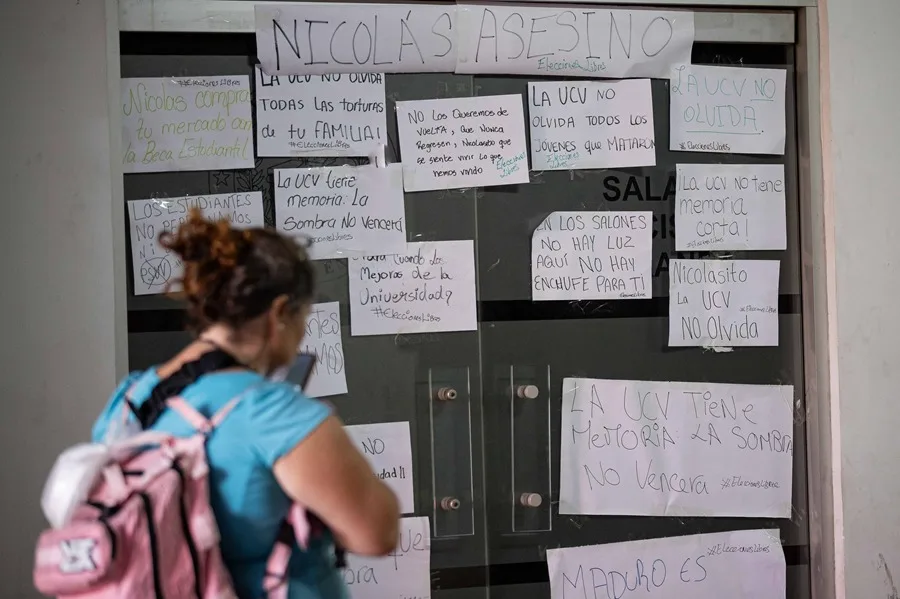 NICOLÁS ASESINO
Elecciones Libres
#Elecciones Libres
Nicolas compra
tu mercado con
la Beca Estudiantil
LA UCV NO OLVIDA
TODAS LAS torturas
de tu FAMILIA!
#EleccionesLibres
NO LOS QUEREMOS DE
VUELTA, QUE NUNCA
REGRESEN, Nicolando que
se siente vivir lo que
hemos vivido
Elecciones
Libres
LA UCV NO
OLVIDA TODOS LOS
JOVENES que MATARON
Elecciones
Libres
LA UCV NO
OLVIDA.
#EleccionesLibres
LOS ESTUDIANTES
NO
NI
PSUV
La UCV tiene
memoria. La
Sombra No Vencerá
#EleccionesLibres
para Cuando Las
Mejoras de la
Universidad?
#EleccionesLibres
SALA
EN LOS SALONES
NO HAY LUZ
AQUÍ NO HAY
ENCHUFE PARA TI
¡La UCV NO tiene
memoria
corta!
#EleccionesLibres
Nicolasito
La UCV
NO Olvida
#EleccionesLibres
NO
LA UCV TIENE
MEMORIA LA SOMBRA
NO Vencera #EleccionesLibres
#EleccionesLibres
MADURO ES